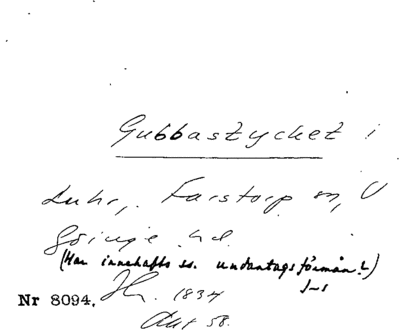 Gubbastycket i
Luhr, Farstorp sn, V
Göinge hd.
(Har innehafts ss. undantagsförmån?)
Nr 8094. 1834
Akt 58.